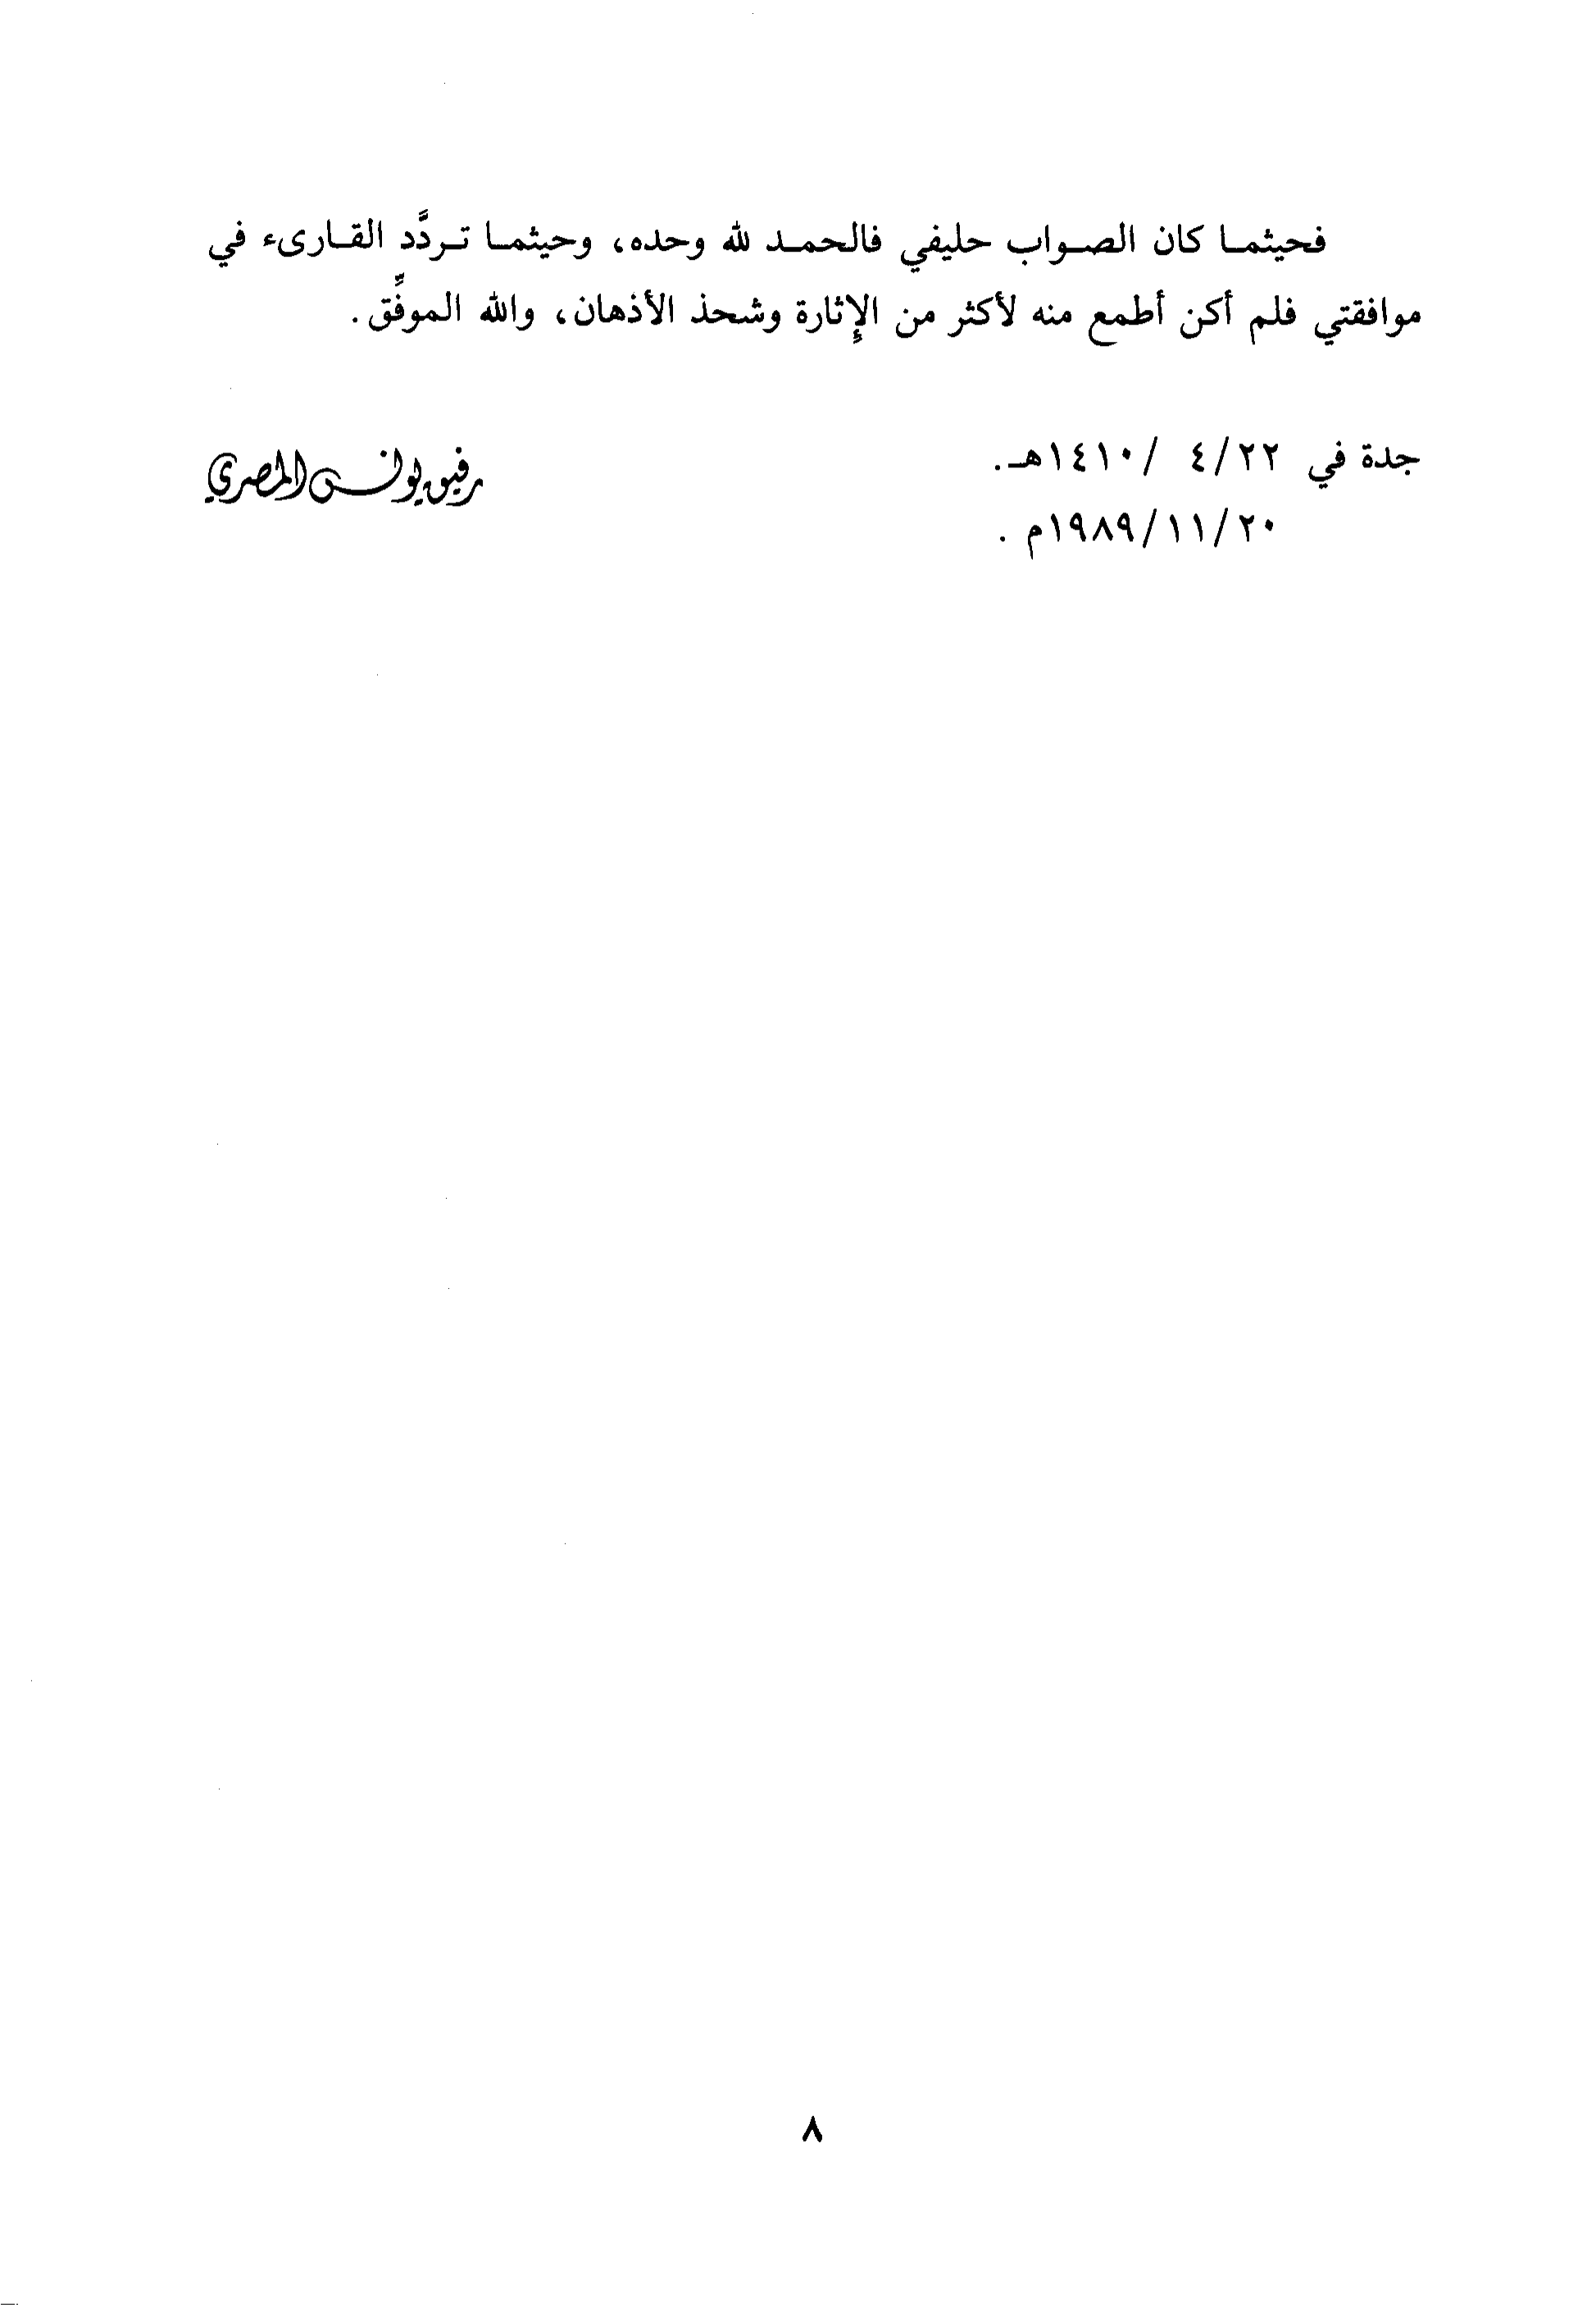 فحيثما كان الصواب حليفي فالحمد لله وحده، وحيثما تردَّد القارىء في
موافقتي فلم أكن أطمع منه لأكثر من الإثارة وشحذ الأذهان، والله الموفِّق.
جدة في ٢٢/٤ /١٤١٠هـ.
رفيق يونس المصري
٢٠/١١/١٩٨٩م .
٨